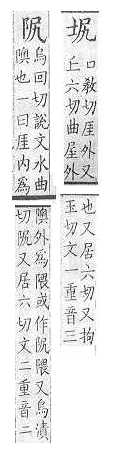 口教切厓外又
丘六切曲厓外
也又居六切又拘
玉切文一重音三
烏回切說文水曲
隩也一曰厓內爲
隩外爲隈或作隈又烏潰
切又居六切文二重音二